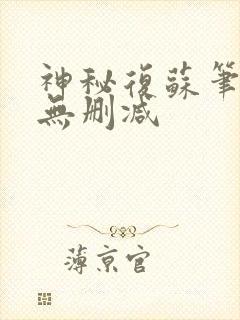 神秘復蘇筆
無刪減
薄京官